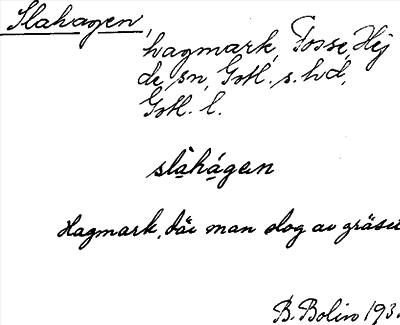 Slahagen,
hagmark, Fosse, Hej
de sn, Gotl. s. hd,
Gotl. l.
slàhágen
Hagmark, där man slog av gräset
B. Bolin 193